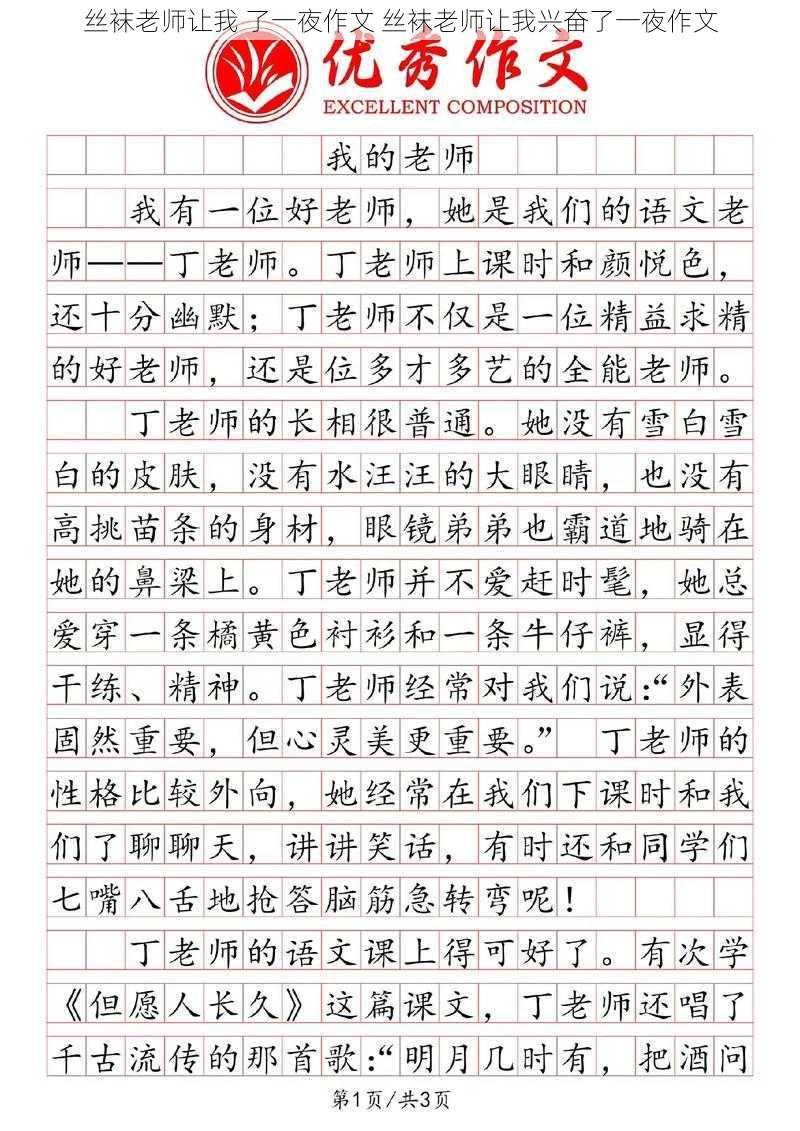 丝袜老师让我 了一夜作文 丝袜老师让我兴奋了一夜作文
优秀作文
EXCELLENT COMPOSITION
我的老师
我有一位好老师，她是我们的语文老
师——丁老师。丁老师上课时和颜悦色，
还十分幽默；丁老师不仅是一位精益求精
的好老师，还是位多才多艺的全能老师。
丁老师的长相很普通。她没有雪白雪
白的皮肤，没有水汪汪的大眼睛，也没有
高挑苗条的身材，眼镜弟弟也霸道地骑在
她的鼻梁上。丁老师并不爱赶时髦，她总
爱穿一条橘黄色衬衫和一条牛仔裤，显得
干练、精神。丁老师经常对我们说：“外表
固然重要，但心灵美更重要。” 丁老师的
性格比较外向，她经常在我们下课时和我
们了聊聊天，讲讲笑话，有时还和同学们
七嘴八舌地抢答脑筋急转弯呢！
丁老师的语文课上得可好了。有次学
《但愿人长久》这篇课文，丁老师还唱了
千古流传的那首歌：“明月几时有，把酒问
第1页/共3页